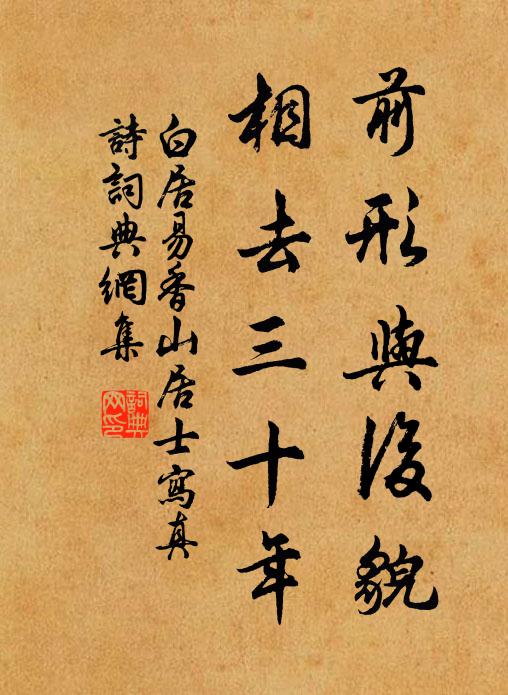 前形與後貌
相去三十年
白居易香山居士寫真
詩詞典網集
詞典网印